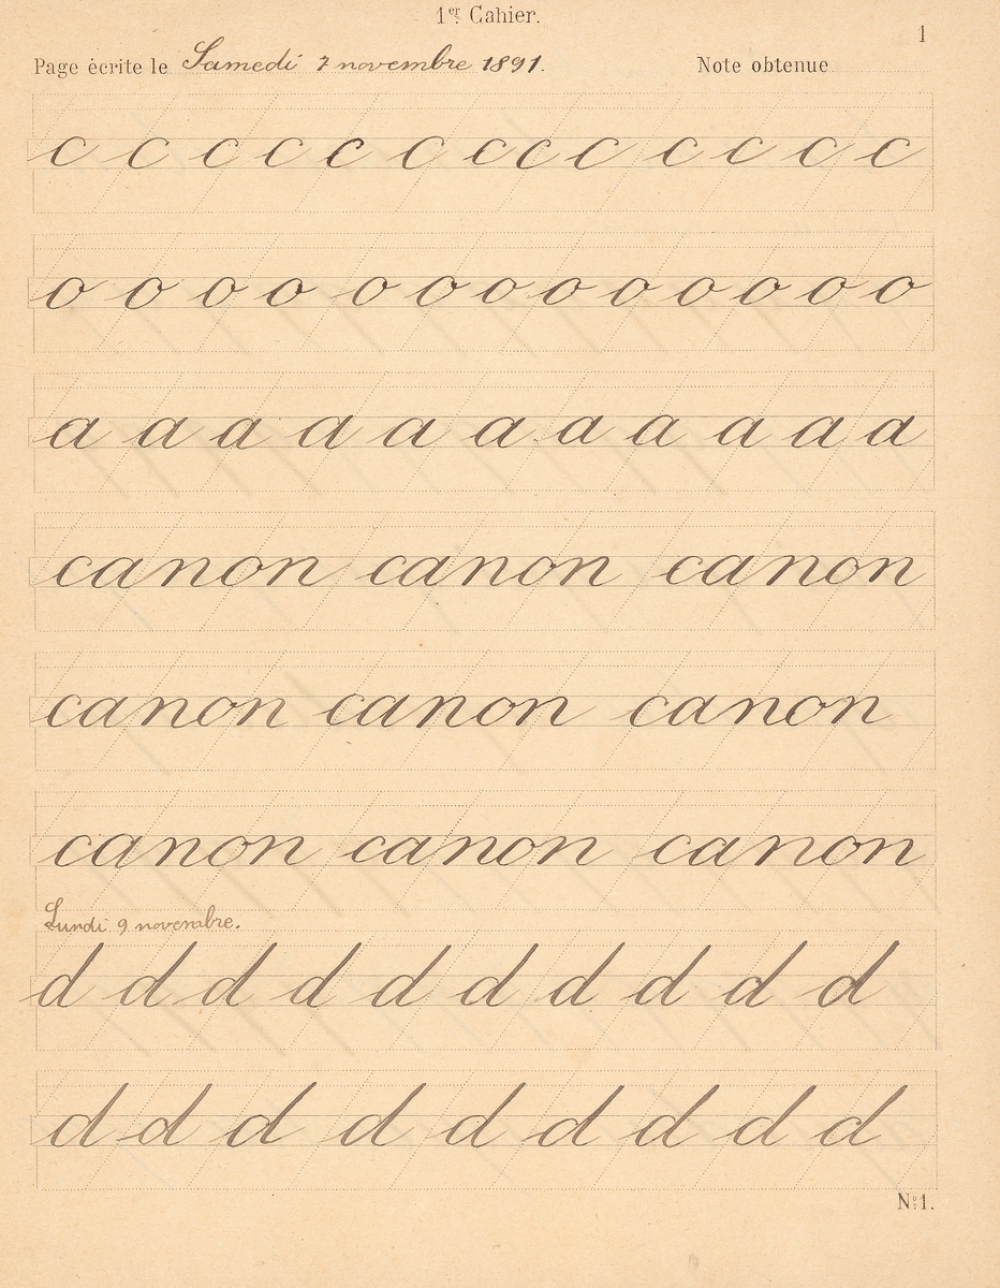 1er Cahier.
1
Page écrite le Samedi 7 novembre 1891. Note obtenue
c c c c c c c c c c c c c
o o o o o o o o o o o o o
a a a a a a a a a a a
canon canon canon
canon canon canon
canon canon canon
Lundi 9 novembre.
d d d d d d d d d d
d d d d d d d d d
N:1.